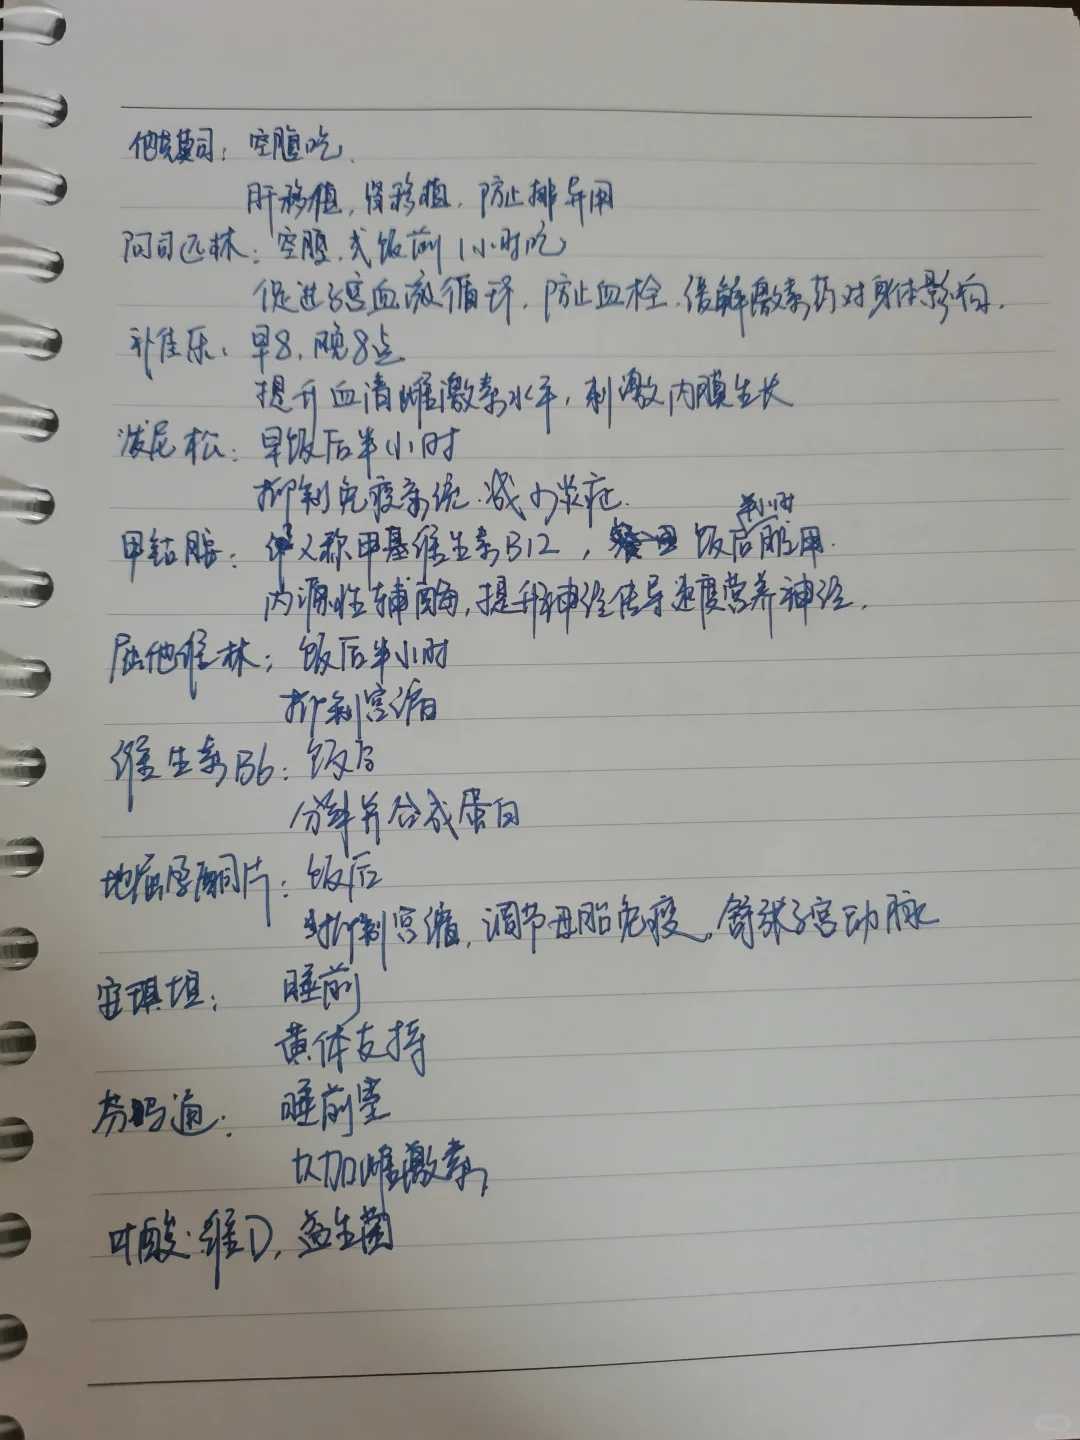 他克莫司：空腹吃.
肝移植，肾移植，防止排异用
阿司匹林：空腹，或饭前1小时吃
促进子宫血液循环，防止血栓，缓解激素药对身体影响.
补佳乐：早8，晚8点
提升血清雌激素水平，刺激内膜生长
泼尼松：早饭后半小时
抑制免疫系统.减少炎症.
甲钴胺：又称甲基维生素B12，饭后半小时服用.
内源性辅酶，提升神经传导速度营养神经.
屈他维林：饭后半小时
抑制宫缩
维生素B6：饭后
分解并合成蛋白
地屈孕酮片：饭后
抑制宫缩，调节母胎免疫，舒张子宫动脉
安琪坦：睡前
黄体支持
芬吗通：睡前塞
加雌激素，
叶酸.维D，益生菌